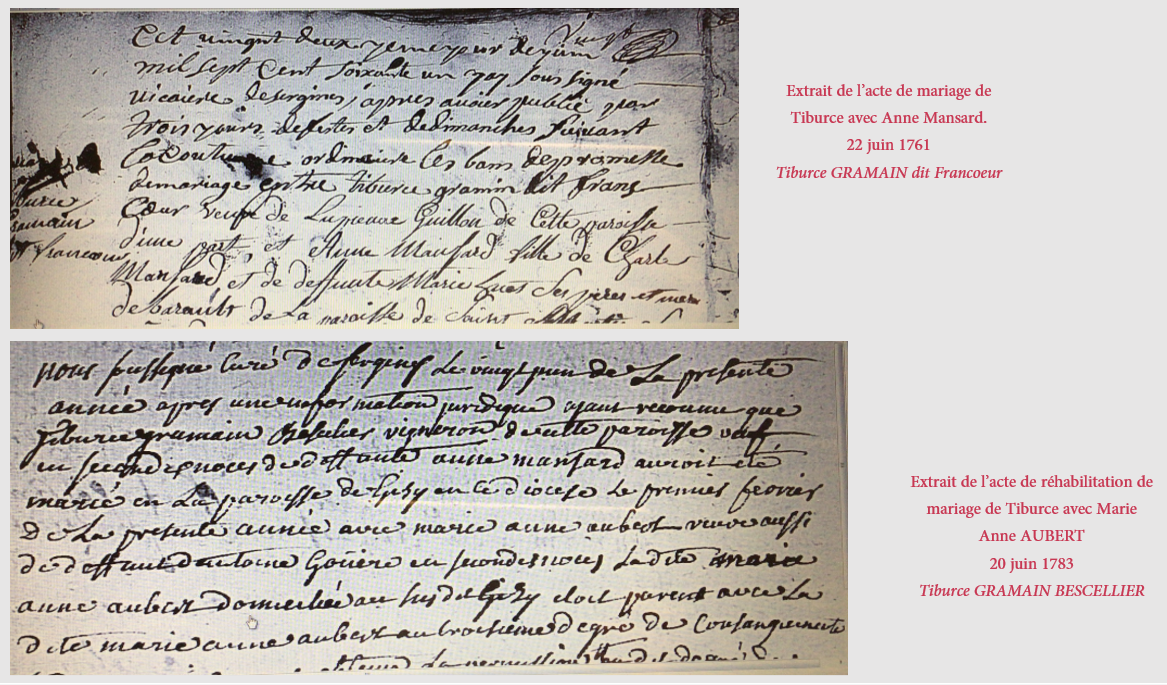 Cet vingt deux yeme jour de juin Vingt
mil sept Cent soixante un par sous signé
vicaire de sergines, apres avoier publié par
trois jours de festes et de dimanches suivant
La Coutume ordinaire les bans de promesse
de mariage entre tiburce gramin dit franc
Cœur veufe de Guillou de Cette paroisse
d'une part, et Anne Mansard fille de Charle
Mansard et de deffunte Marie ses peres et mere
de la paroisse de Saint
Gramain
francœur
Extrait de l'acte de mariage de
Tiburce avec Anne Mansard.
22 juin 1761
Tiburce GRAMAIN dit Francoeur
nous soussigné Curé de sergines Le vingt juin de La presente
année apres une information juridique ayant reconnu que
Tiburce gramain Besselier vigneron de cette paroisse veuf
en secondes noces de deffunte anne mansard auroit été
marié en La paroisse de Gizy en ce diocese Le premier fevrier
de La presente année avec marie anne aubert veuve aussi
de deffunt antoine Gouere en secondes noces La dite marie
anne aubert domiciliée au susdit Gizy etoit parente avec La
dite marie anne aubert au troisieme degré de Consanguinité
La permission
Extrait de l'acte de réhabilitation de
mariage de Tiburce avec Marie
Anne AUBERT
20 juin 1783
Tiburce GRAMAIN BESCELLIER